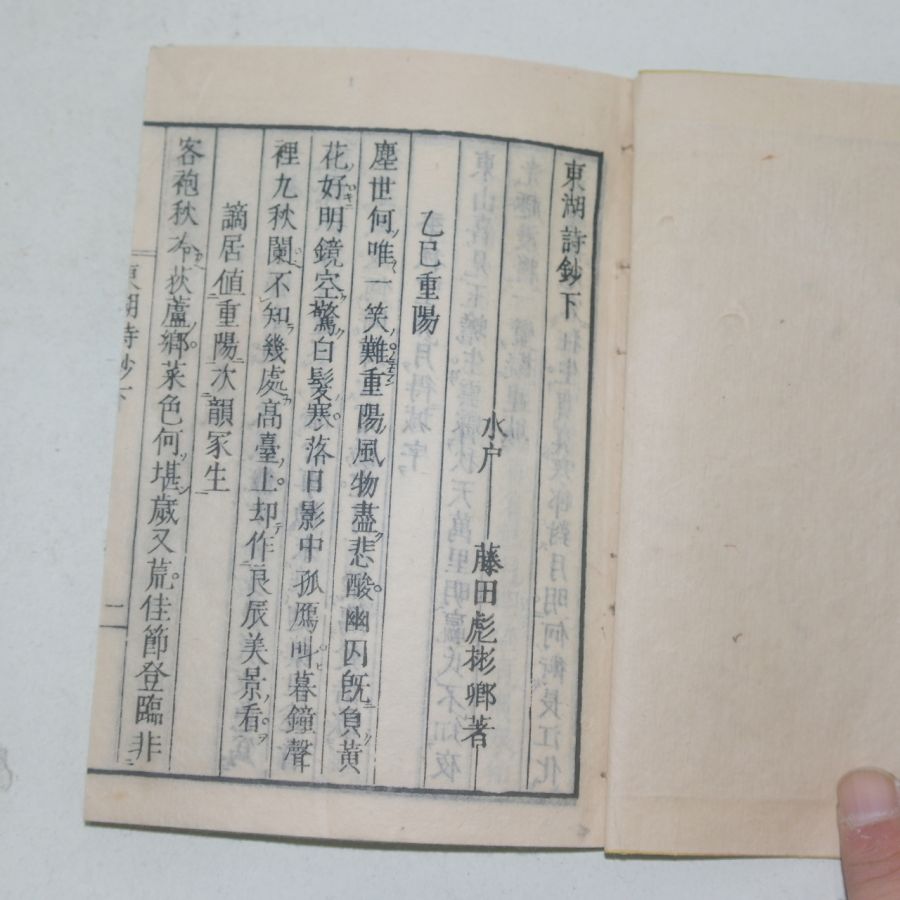 東湖詩鈔下
水戸 藤田彪彬卿著
乙巳重陽
塵世何唯一笑難重陽風物盡悲酸幽囚既負黄
花好明鏡空驚白髮寒落日影中孤鴈叫暮鐘聲
裡九秋闌不知幾處高臺上却作良辰美景看
謫居値重陽次韻冢生
客袍秋冷荻蘆鄉菜色何堪歲又荒佳節登臨非
東湖詩鈔下 一